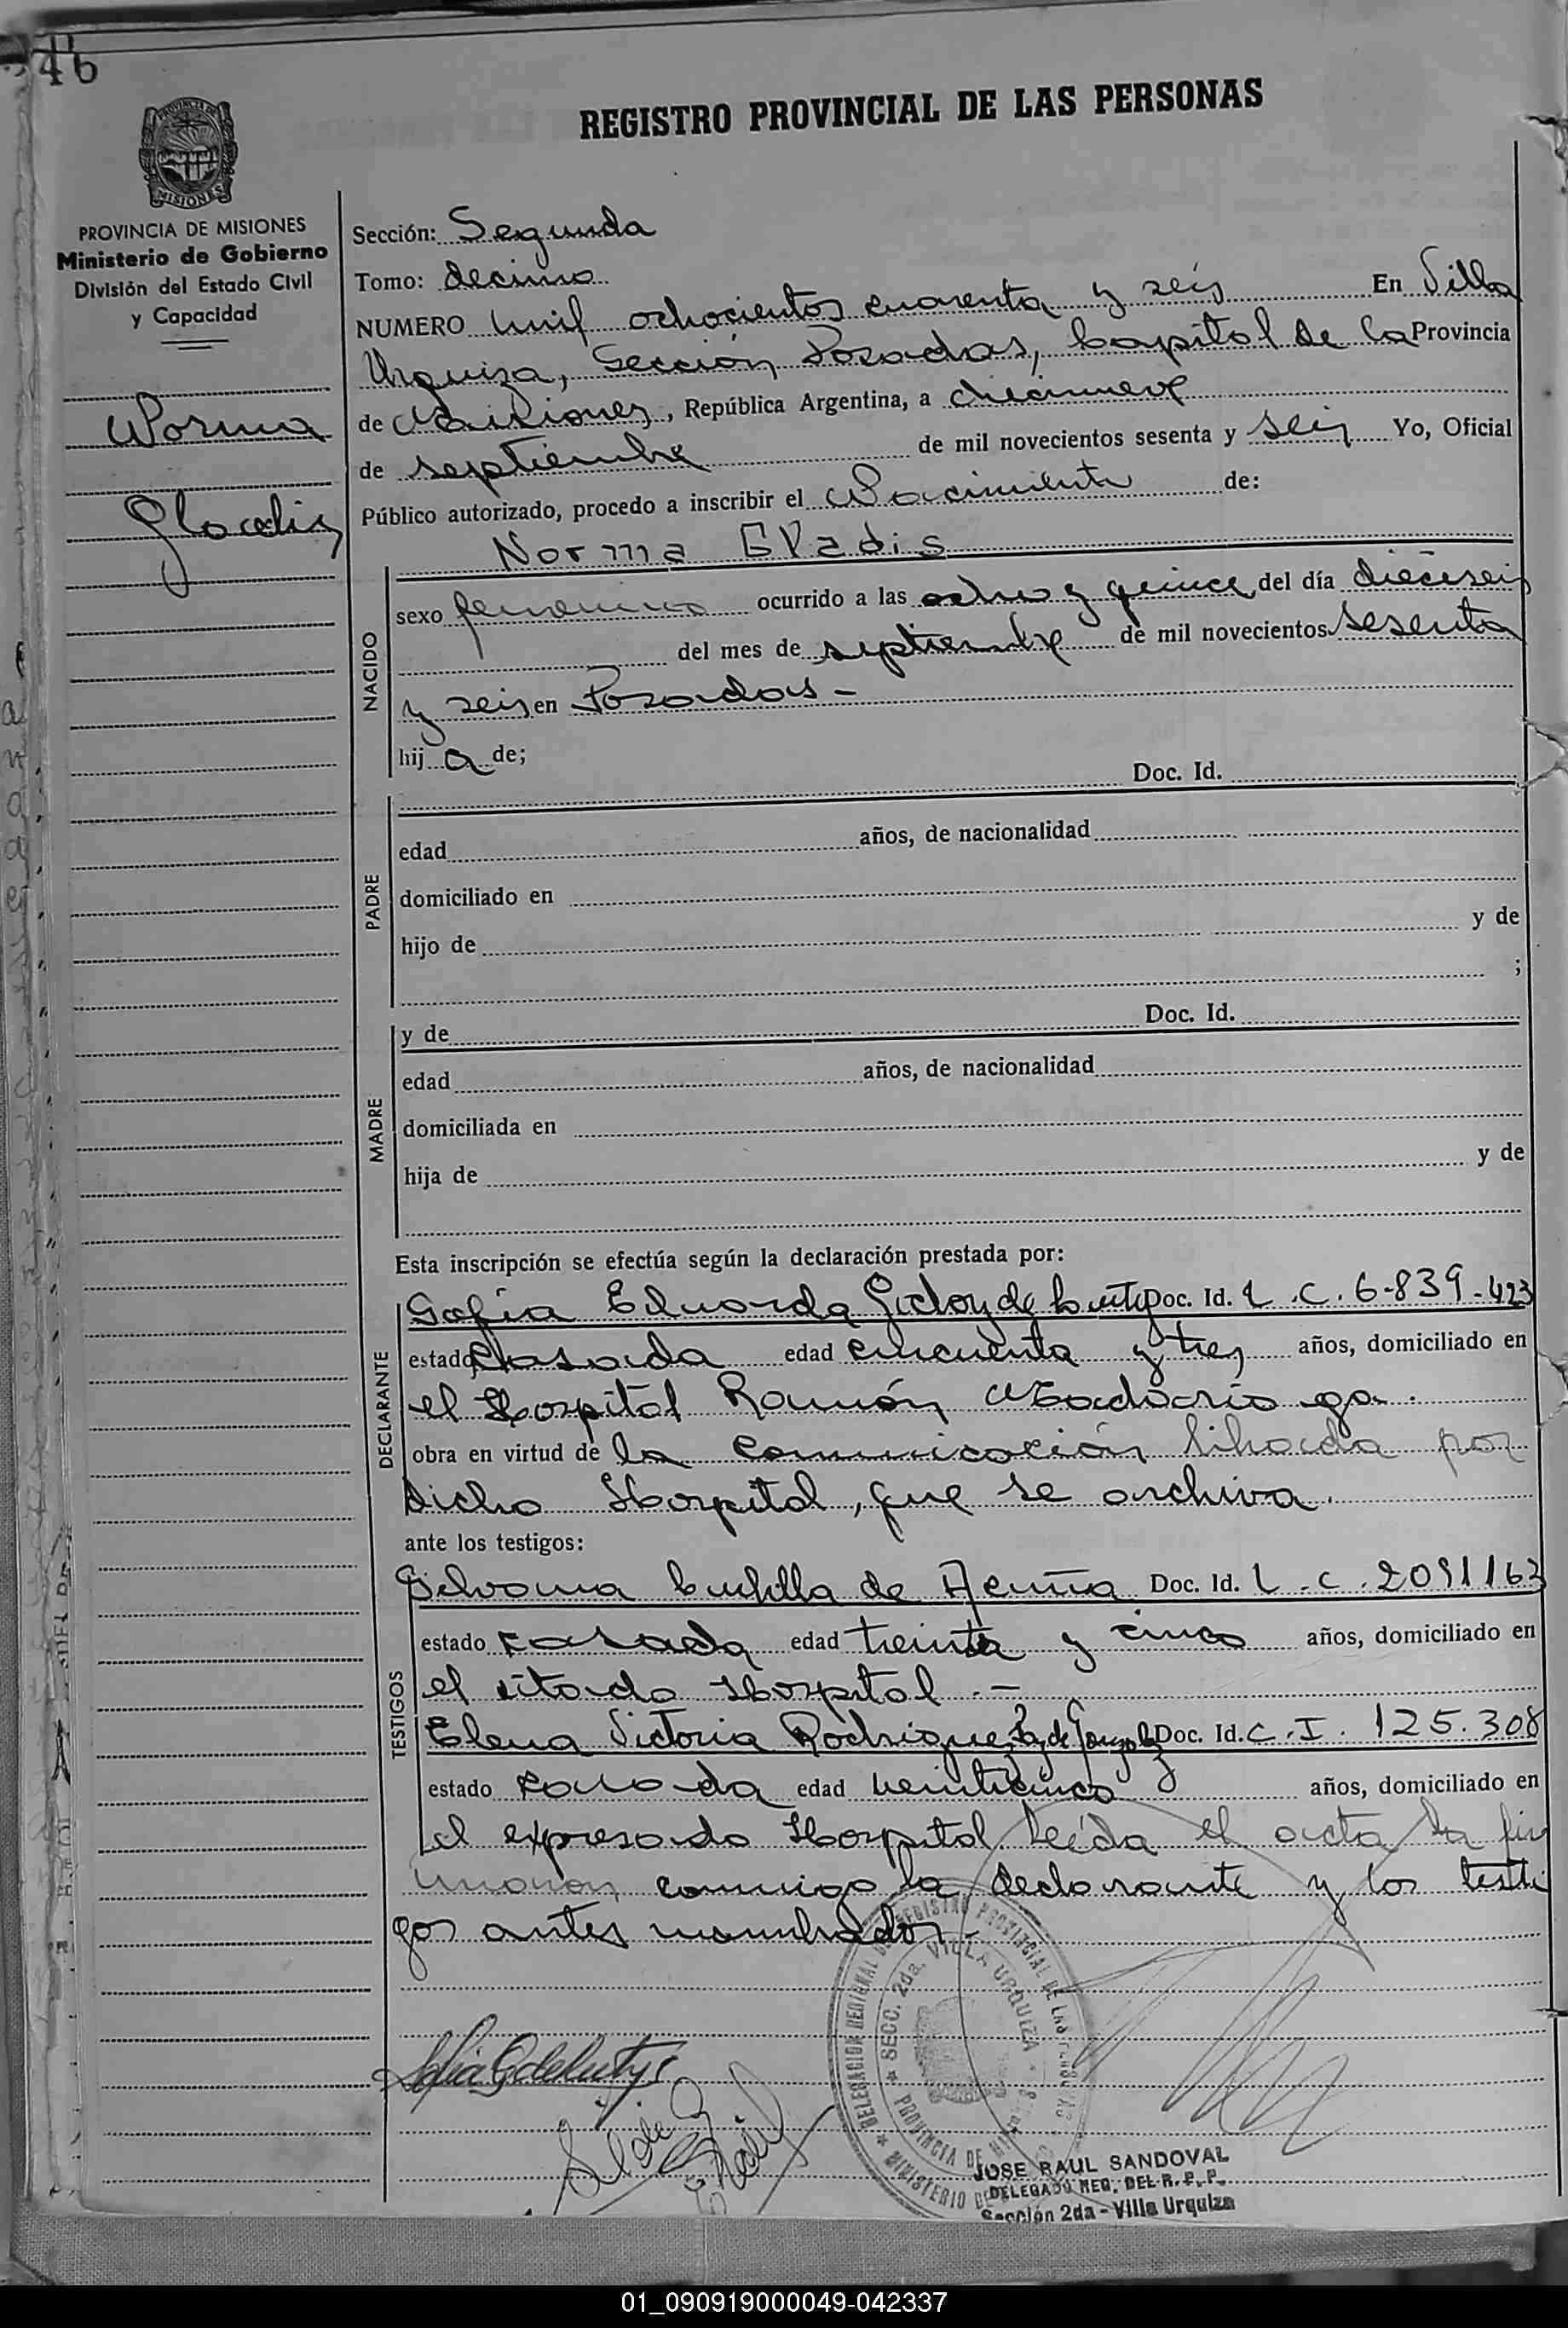 46
REGISTRO PROVINCIAL DE LAS PERSONAS
PROVINCIA DE MISIONES
PROVINCIA DE MISIONES
Ministerio de Gobierno
División del Estado Civil
y Capacidad
Norma
Gladis
Sección: Segunda
Tomo: decimo
NUMERO mil ochocientos cuarenta y seis En Villa
Urquiza, Sección Posadas, Capital de la Provincia
de Misiones, República Argentina, a diecinueve
de septiembre de mil novecientos sesenta y seis Yo, Oficial
Público autorizado, procedo a inscribir el Nacimiento de:
Norma Gladis
NACIDO
sexo femenino ocurrido a las ocho y quince del día dieciseis
del mes de septiembre de mil novecientos sesenta
y seis en Posadas -
hij a de;
PADRE
Doc. Id.
edad años, de nacionalidad
domiciliado en
hijo de y de
;
MADRE
y de Doc. Id.
edad años, de nacionalidad
domiciliada en
hija de y de
Esta inscripción se efectúa según la declaración prestada por:
DECLARANTE
Sofía Eduarda de Doc. Id. L.C. 6-839-423
estado casada edad cincuenta y tres años, domiciliado en
el Hospital Ramón Madariaga.
obra en virtud de la comunicación librada por
dicho Hospital, que se archiva.
ante los testigos:
TESTIGOS
Silvana de Acuña Doc. Id. L.C. 2091163
estado casada edad treinta y cinco años, domiciliado en
el citado Hospital.-
Elena Victoria Rodriguez de Doc. Id. C.I. 125.308
estado casada edad veinticinco años, domiciliado en
el expresado Hospital. Leída el acta la fir
maron conmigo la declarante y los testi
gos antes nombrados.-
DELEGACION REGIONAL DEL REGISTRO PROVINCIAL DE LAS PERSONAS
SECC. 2da. VILLA URQUIZA
PROVINCIA DE MISIONES
MINISTERIO DE
JOSE RAUL SANDOVAL
DELEGADO REG. DEL R. P. P.
Sección 2da - Villa Urquiza
01_090919000049-042337